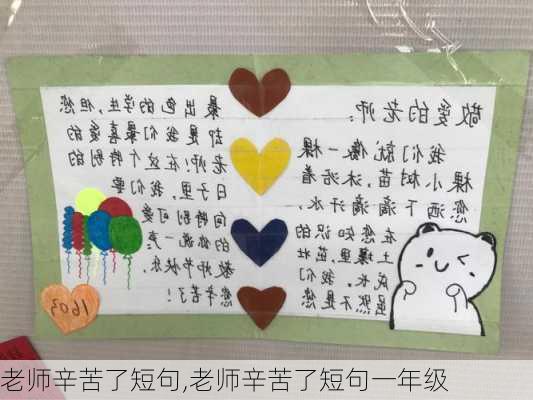 敬爱的老师:
我们就像一棵
棵小树苗,沐浴着
您洒下滴滴汗水,
在您知识的
土壤里,茁壮
成长。我们
虽然不是您
最出色的学生,但您
却是我们最喜爱的
老师!在这个特别的
日子里,我们要
向特别可爱
的您说一声:
教师节快乐,
您辛苦了!
1603
老师辛苦了短句,老师辛苦了短句一年级